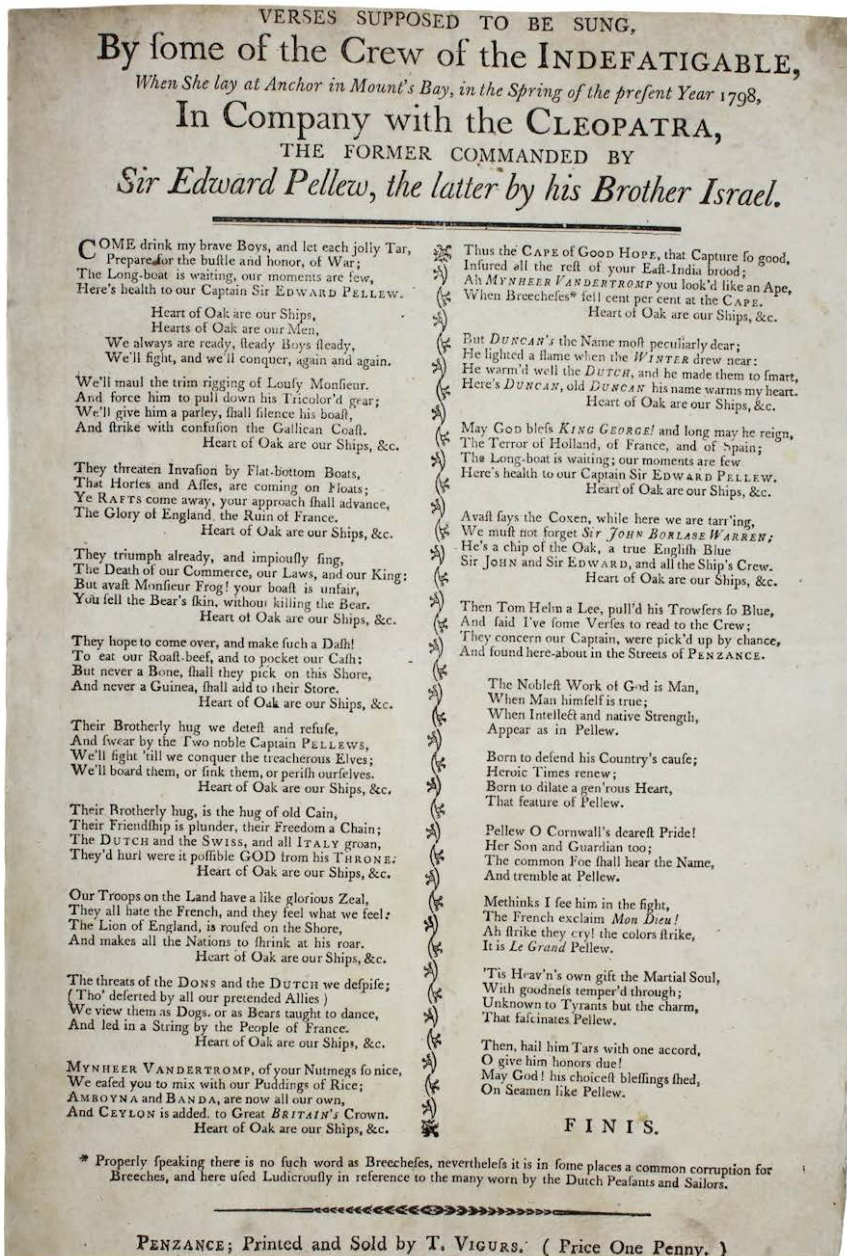 VERSES SUPPOSED TO BE SUNG,
By ſome of the Crew of the INDEFATIGABLE,
When She lay at Anchor in Mount's Bay, in the Spring of the preſent Year 1798,
In Company with the CLEOPATRA,
THE FORMER COMMANDED BY
Sir Edward Pellew, the latter by his Brother Israel.
COME drink my brave Boys, and let each jolly Tar,
Prepare for the buſtle and honor, of War;
The Long-boat is waiting, our moments are few,
Here's health to our Captain Sir EDWARD PELLEW.
Heart of Oak are our Ships,
Hearts of Oak are our Men,
We always are ready, ſteady Boys ſteady,
We'll fight, and we'll conquer, again and again.
We'll maul the trim rigging of Louſy Monſieur.
And force him to pull down his Tricolor'd gear;
We'll give him a parley, ſhall ſilence his boaſt,
And ſtrike with confuſion the Gallican Coaſt.
Heart of Oak are our Ships, &c.
They threaten Invaſion by Flat-bottom Boats,
That Horſes and Aſſes, are coming on Floats;
Ye RAFTS come away, your approach ſhall advance,
The Glory of England, the Ruin of France.
Heart of Oak are our Ships, &c.
They triumph already, and impiouſly ſing,
The Death of our Commerce, our Laws, and our King;
But avaſt Monſieur Frog! your boaſt is unfair,
You ſell the Bear's ſkin, without killing the Bear.
Heart of Oak are our Ships, &c.
They hope to come over, and make ſuch a Daſh!
To eat our Roaſt-beef, and to pocket our Caſh;
But never a Bone, ſhall they pick on this Shore,
And never a Guinea, ſhall add to their Store.
Heart of Oak are our Ships, &c.
Their Brotherly hug we deteſt and refuſe,
And ſwear by the Two noble Captain PELLEWS,
We'll fight 'till we conquer the treacherous Elves;
We'll board them, or ſink them, or periſh ourſelves.
Heart of Oak are our Ships, &c.
Their Brotherly hug, is the hug of old Cain,
Their Friendſhip is plunder, their Freedom a Chain;
The DUTCH and the SWISS, and all ITALY groan,
They'd hurl were it poſſible GOD from his THRONE.
Heart of Oak are our Ships, &c.
Our Troops on the Land have a like glorious Zeal,
They all hate the French, and they feel what we feel;
The Lion of England, is rouſed on the Shore,
And makes all the Nations to ſhrink at his roar.
Heart of Oak are our Ships, &c.
The threats of the DONS and the DUTCH we deſpiſe;
(Tho' deſerted by all our pretended Allies)
We view them as Dogs. or as Bears taught to dance,
And led in a String by the People of France.
Heart of Oak are our Ships, &c.
MYNHEER VANDERTROMP, of your Nutmegs ſo nice,
We eaſed you to mix with our Puddings of Rice;
AMBOYNA and BANDA, are now all our own,
And CEYLON is added. to Great BRITAIN's Crown.
Heart of Oak are our Ships, &c.
Thus the CAPE of GOOD HOPE, that Capture ſo good,
Inſured all the reſt of your Eaſt-India brood;
Ah MYNHEER VANDERTROMP you look'd like an Ape,
When Breecheſes* fell cent per cent at the CAPE.
Heart of Oak are our Ships, &c.
But DUNCAN's the Name moſt peculiarly dear;
He lighted a flame when the WINTER drew near:
He warm'd well the DUTCH, and he made them to ſmart,
Here's DUNCAN, old DUNCAN his name warms my heart.
Heart of Oak are our Ships, &c.
May GOD bleſs KING GEORGE! and long may he reign,
The Terror of Holland, of France, and of Spain;
The Long-boat is waiting; our moments are few
Here's health to our Captain Sir EDWARD PELLEW.
Heart of Oak are our Ships, &c.
Avaſt ſays the Coxen, while here we are tarr'ing,
We muſt not forget Sir JOHN BORLASE WARREN;
He's a chip of the Oak, a true Engliſh Blue
Sir JOHN and Sir EDWARD, and all the Ship's Crew.
Heart of Oak are our Ships, &c.
Then Tom Helm a Lee, pull'd his Trowſers ſo Blue,
And ſaid I've ſome Verſes to read to the Crew;
They concern our Captain, were pick'd up by chance,
And found here-about in the Streets of PENZANCE.
The Nobleſt Work of God is Man,
When Man himſelf is true;
When Intellect and native Strength,
Appear as in Pellew.
Born to defend his Country's cauſe;
Heroic Times renew;
Born to dilate a gen'rous Heart,
That feature of Pellew.
Pellew O Cornwall's deareſt Pride!
Her Son and Guardian too;
The common Foe ſhall hear the Name,
And tremble at Pellew.
Methinks I ſee him in the fight,
The French exclaim Mon Dieu!
Ah ſtrike they cry! the colors ſtrike,
It is Le Grand Pellew.
'Tis Heav'n's own gift the Martial Soul,
With goodneſs temper'd through;
Unknown to Tyrants but the charm,
That faſcinates Pellew.
Then, hail him Tars with one accord,
O give him honors due!
May God! his choiceſt bleſſings ſhed,
On Seamen like Pellew.
FINIS.
* Properly ſpeaking there is no ſuch word as Breecheſes, nevertheleſs it is in ſome places a common corruption for
Breeches, and here uſed Ludicrouſly in reference to the many worn by the Dutch Peaſants and Sailors.
PENZANCE; Printed and Sold by T. VIGURS. (Price One Penny.)